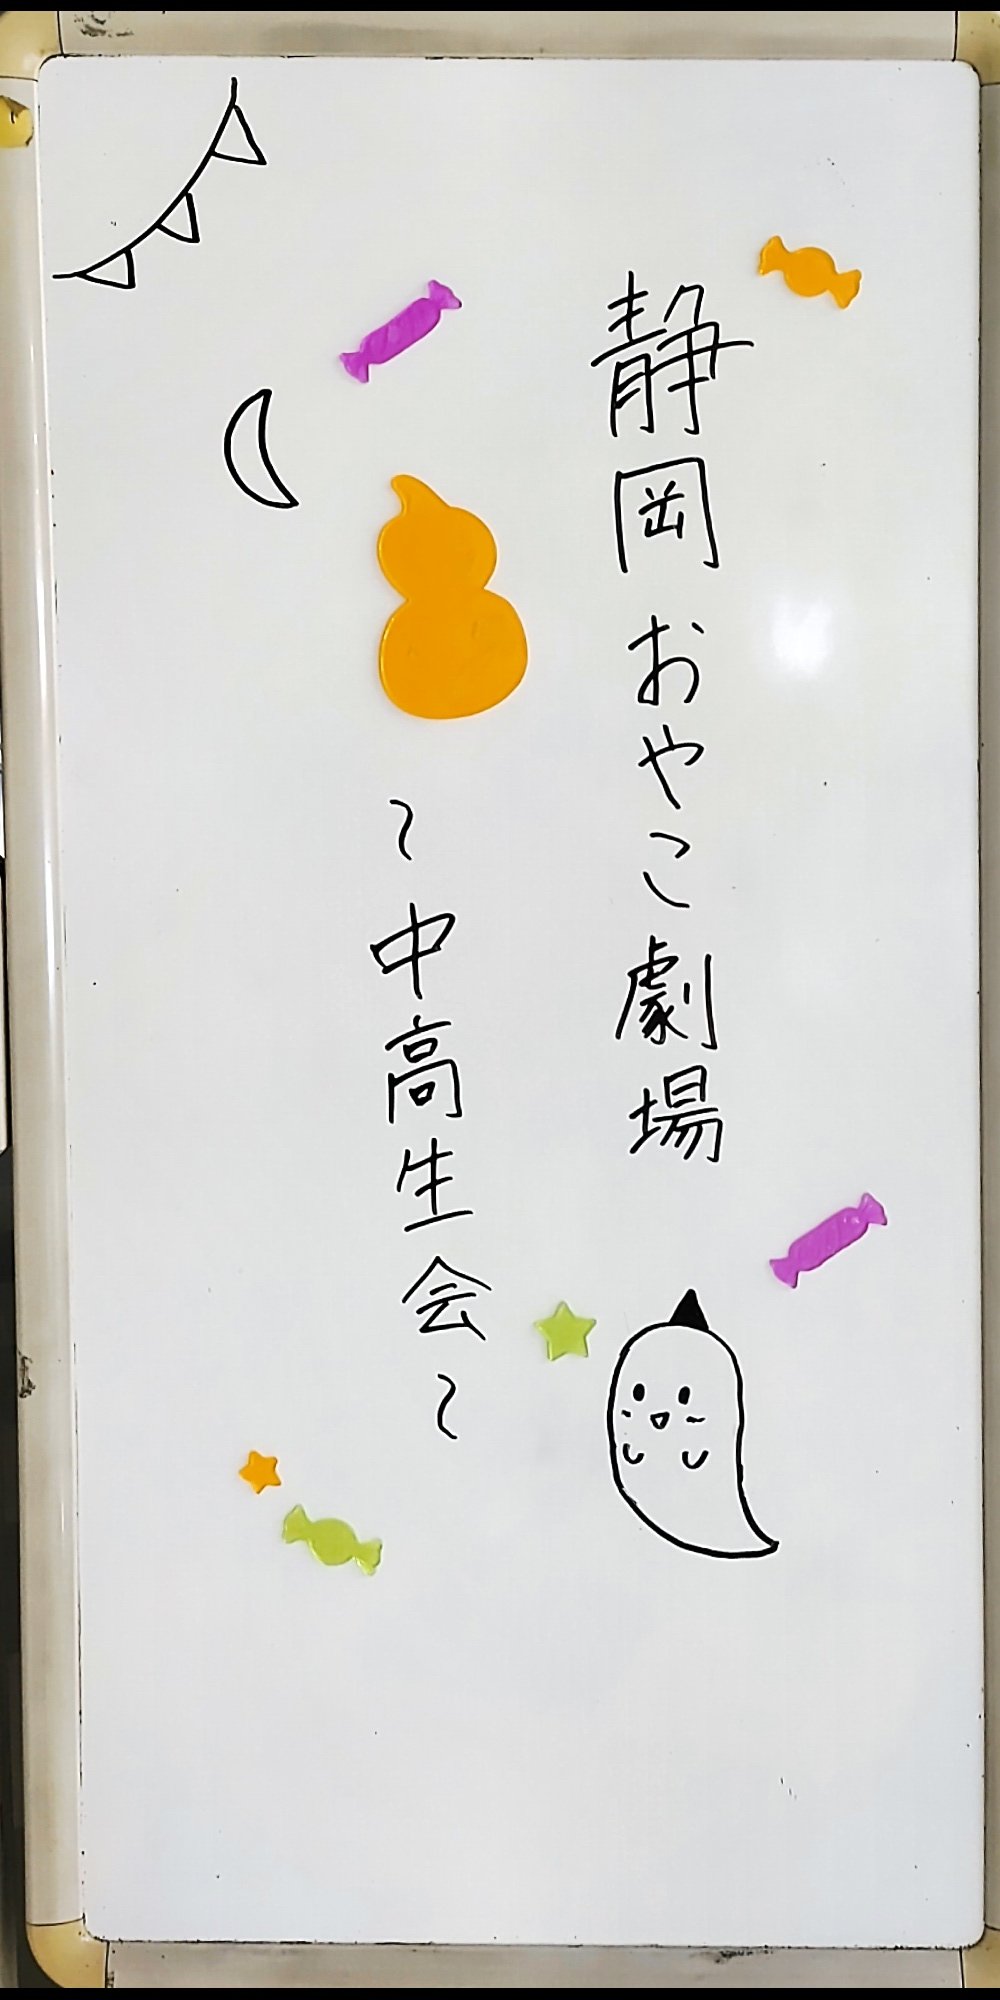 静岡おやこ劇場
〜中高生会〜